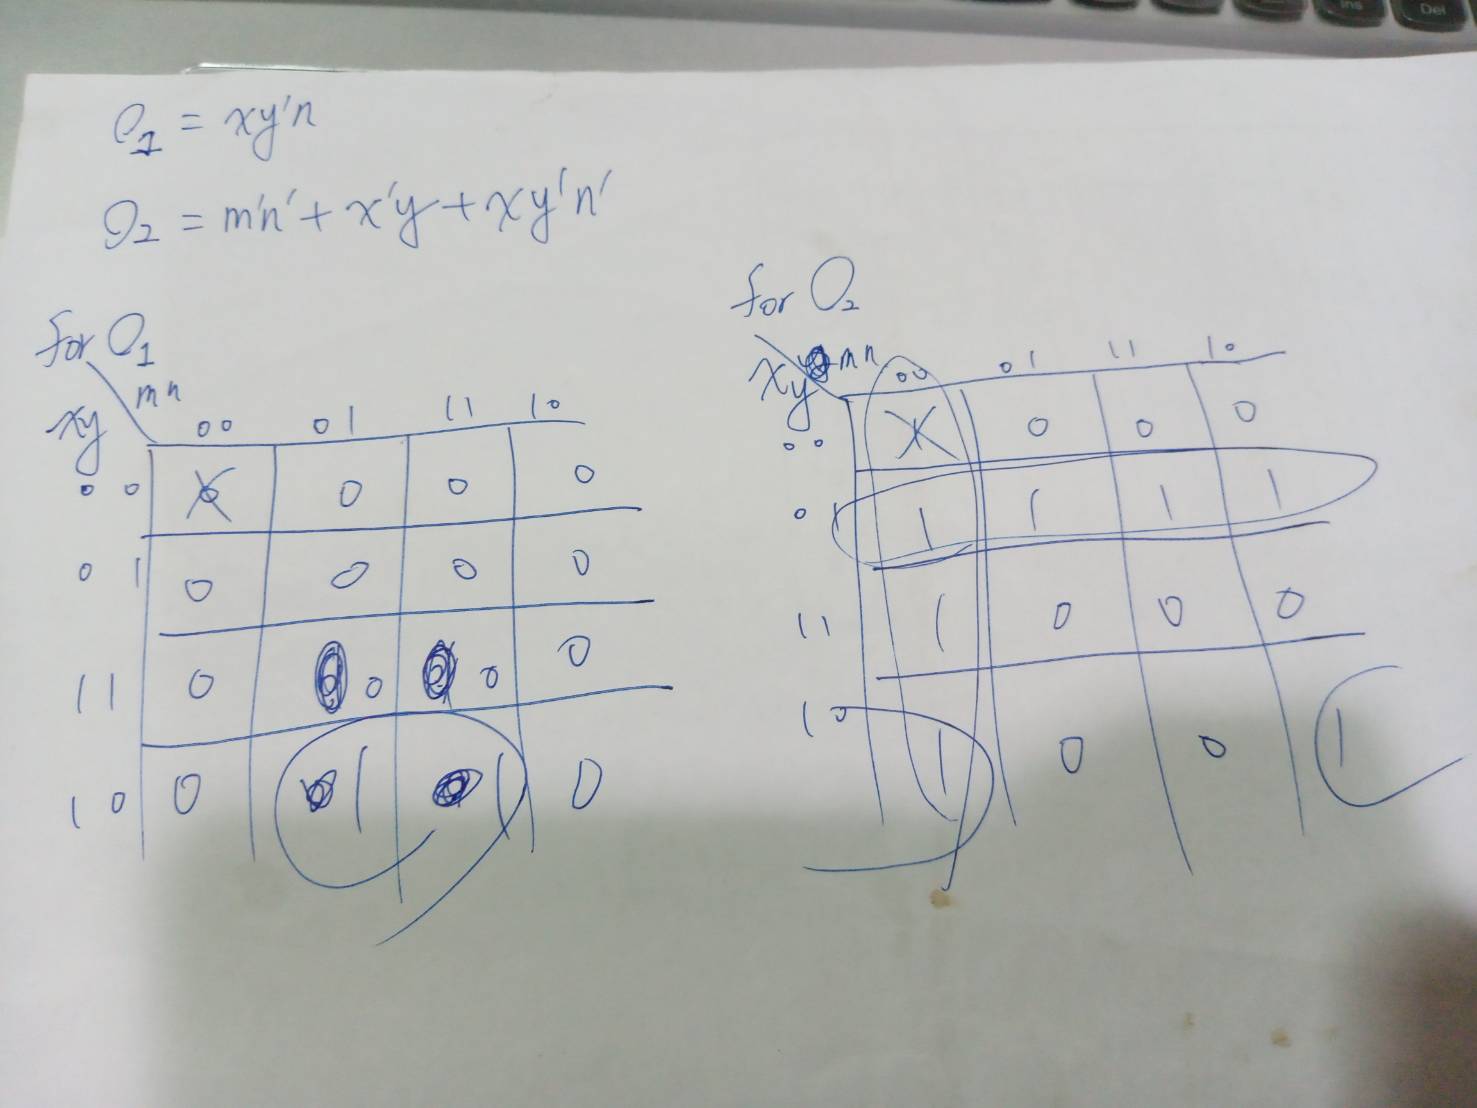 O₁ = xy'n
O₂ = m'n' + x'y + xy'n'
for O₁
mn
xy
00 01 11 10
00 X 0 0 0
01 0 0 0 0
11 0 0 0 0
10 0 1 1 0
for O₂
xy mn
00 01 11 10
00 X 0 0 0
01 1 1 1 1
11 1 0 0 0
10 1 0 0 1
Ins
Del